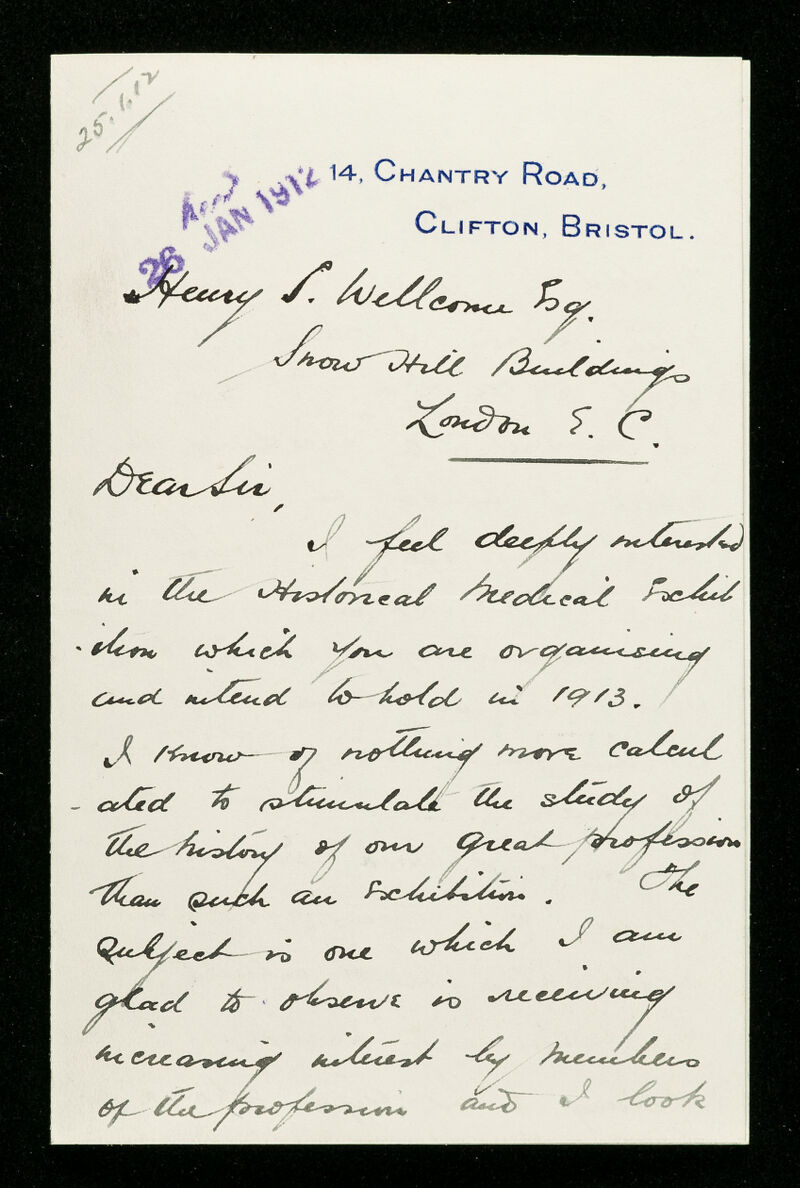 25.1.12
14, CHANTRY ROAD,
CLIFTON, BRISTOL.
26 JAN 1912
Henry S. Wellcome Esq.
Snow Hill Buildings
London E. C.
Dear Sir,
I feel deeply interested
in the Historical Medical Exhib
-ition which you are organising
and intend to hold in 1913.
I know of nothing more calcul
-ated to stimulate the study of
the history of our great profession
than such an Exhibition. The
subject is one which I am
glad to observe is receiving
increasing interest by members
of the profession and I look